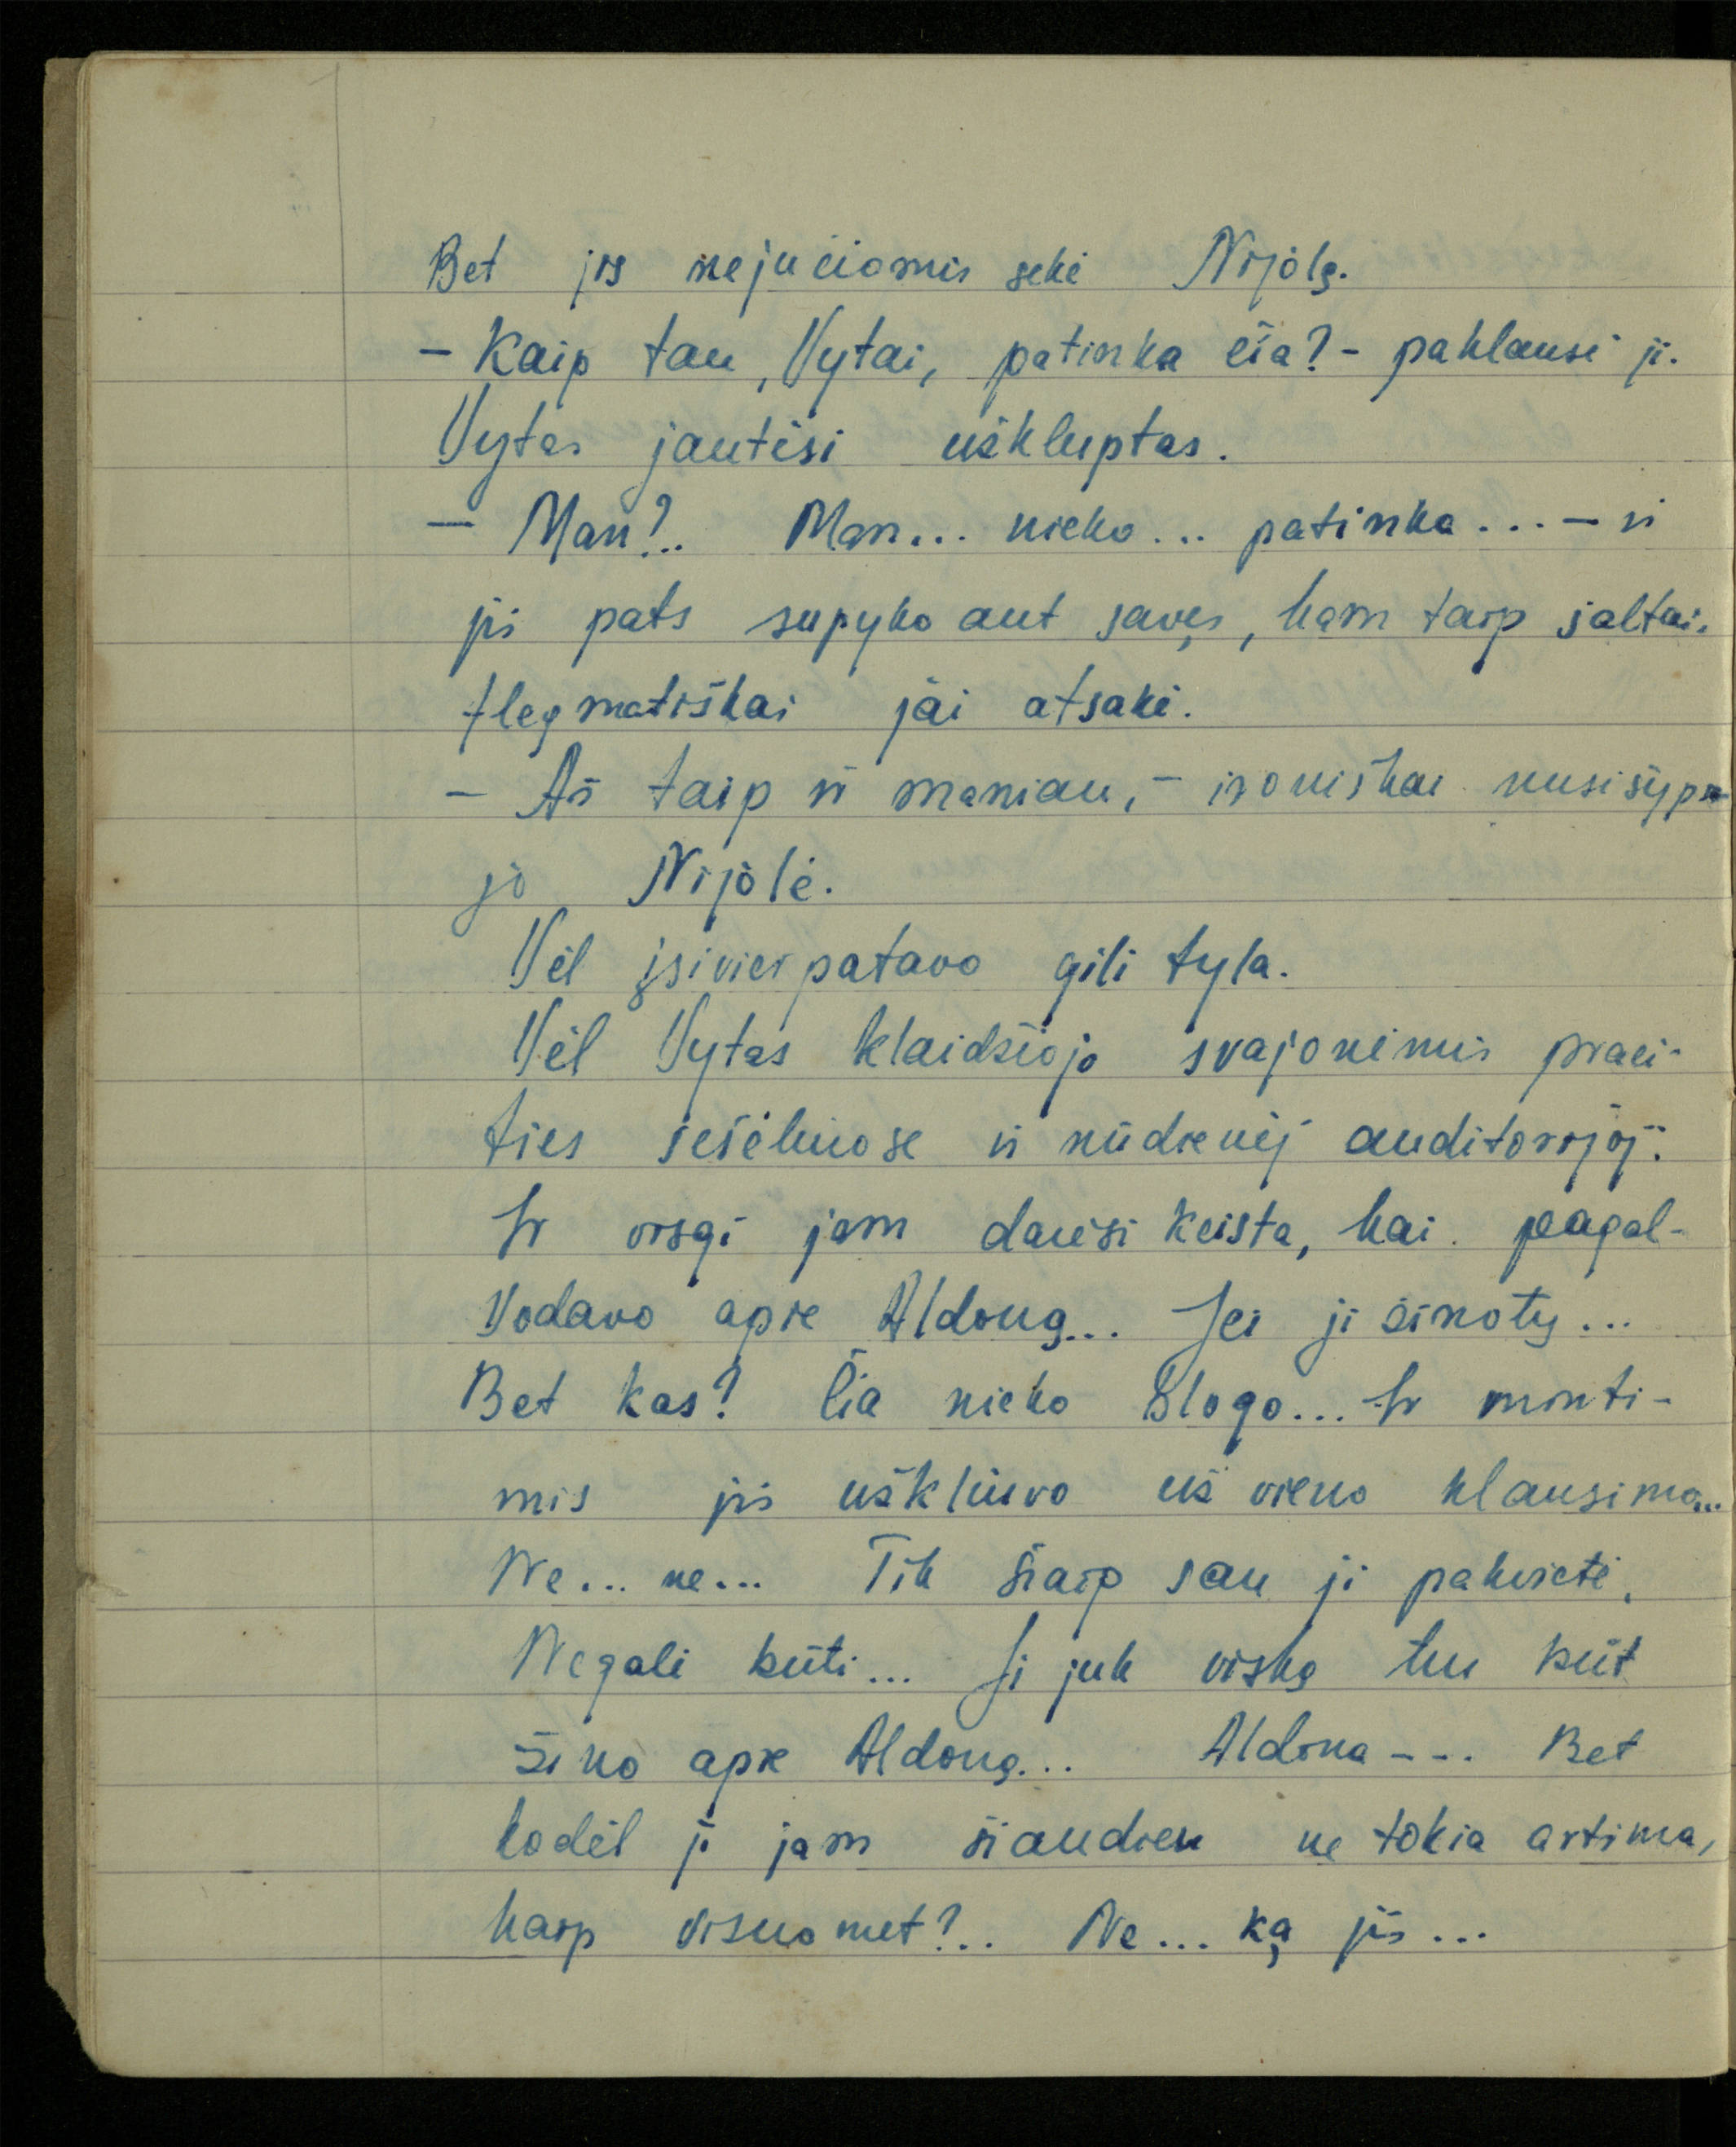 Bet jis nejučiomis sekė Nijolę.
– Kaip tau, Vytai, patinka čia? – paklausė ji.
Vytas jautėsi užkluptas.
– Man?.. Man... nieko... patinka... – ir
jis pats supyko ant savęs, kam taip šaltai,
flegmatiškai jai atsakė.
– Aš taip ir maniau, – ironiškai nusišypso
jo Nijolė.
Vėl įsiviešpatavo gili tyla.
Vėl Vytas klaidžiojo svajonėmis praei-
ties šešėliuose ir nūdienėj auditorijoj.
Ir visgi jam darėsi keista, kai pagal-
vodavo apie Aldoną... Jei ji žinotų...
Bet kas? Čia nieko blogo... Ir minti-
mis jis užkliuvo už vieno klausimo...
Ne... ne... Tik šiaip sau ji pakvietė.
Negali būti... Ji juk viską kuo būt
žino apie Aldoną... Aldona --- Bet
kodėl ji jam šiandien ne tokia artima,
kaip visuomet?.. Ne... ką jis...